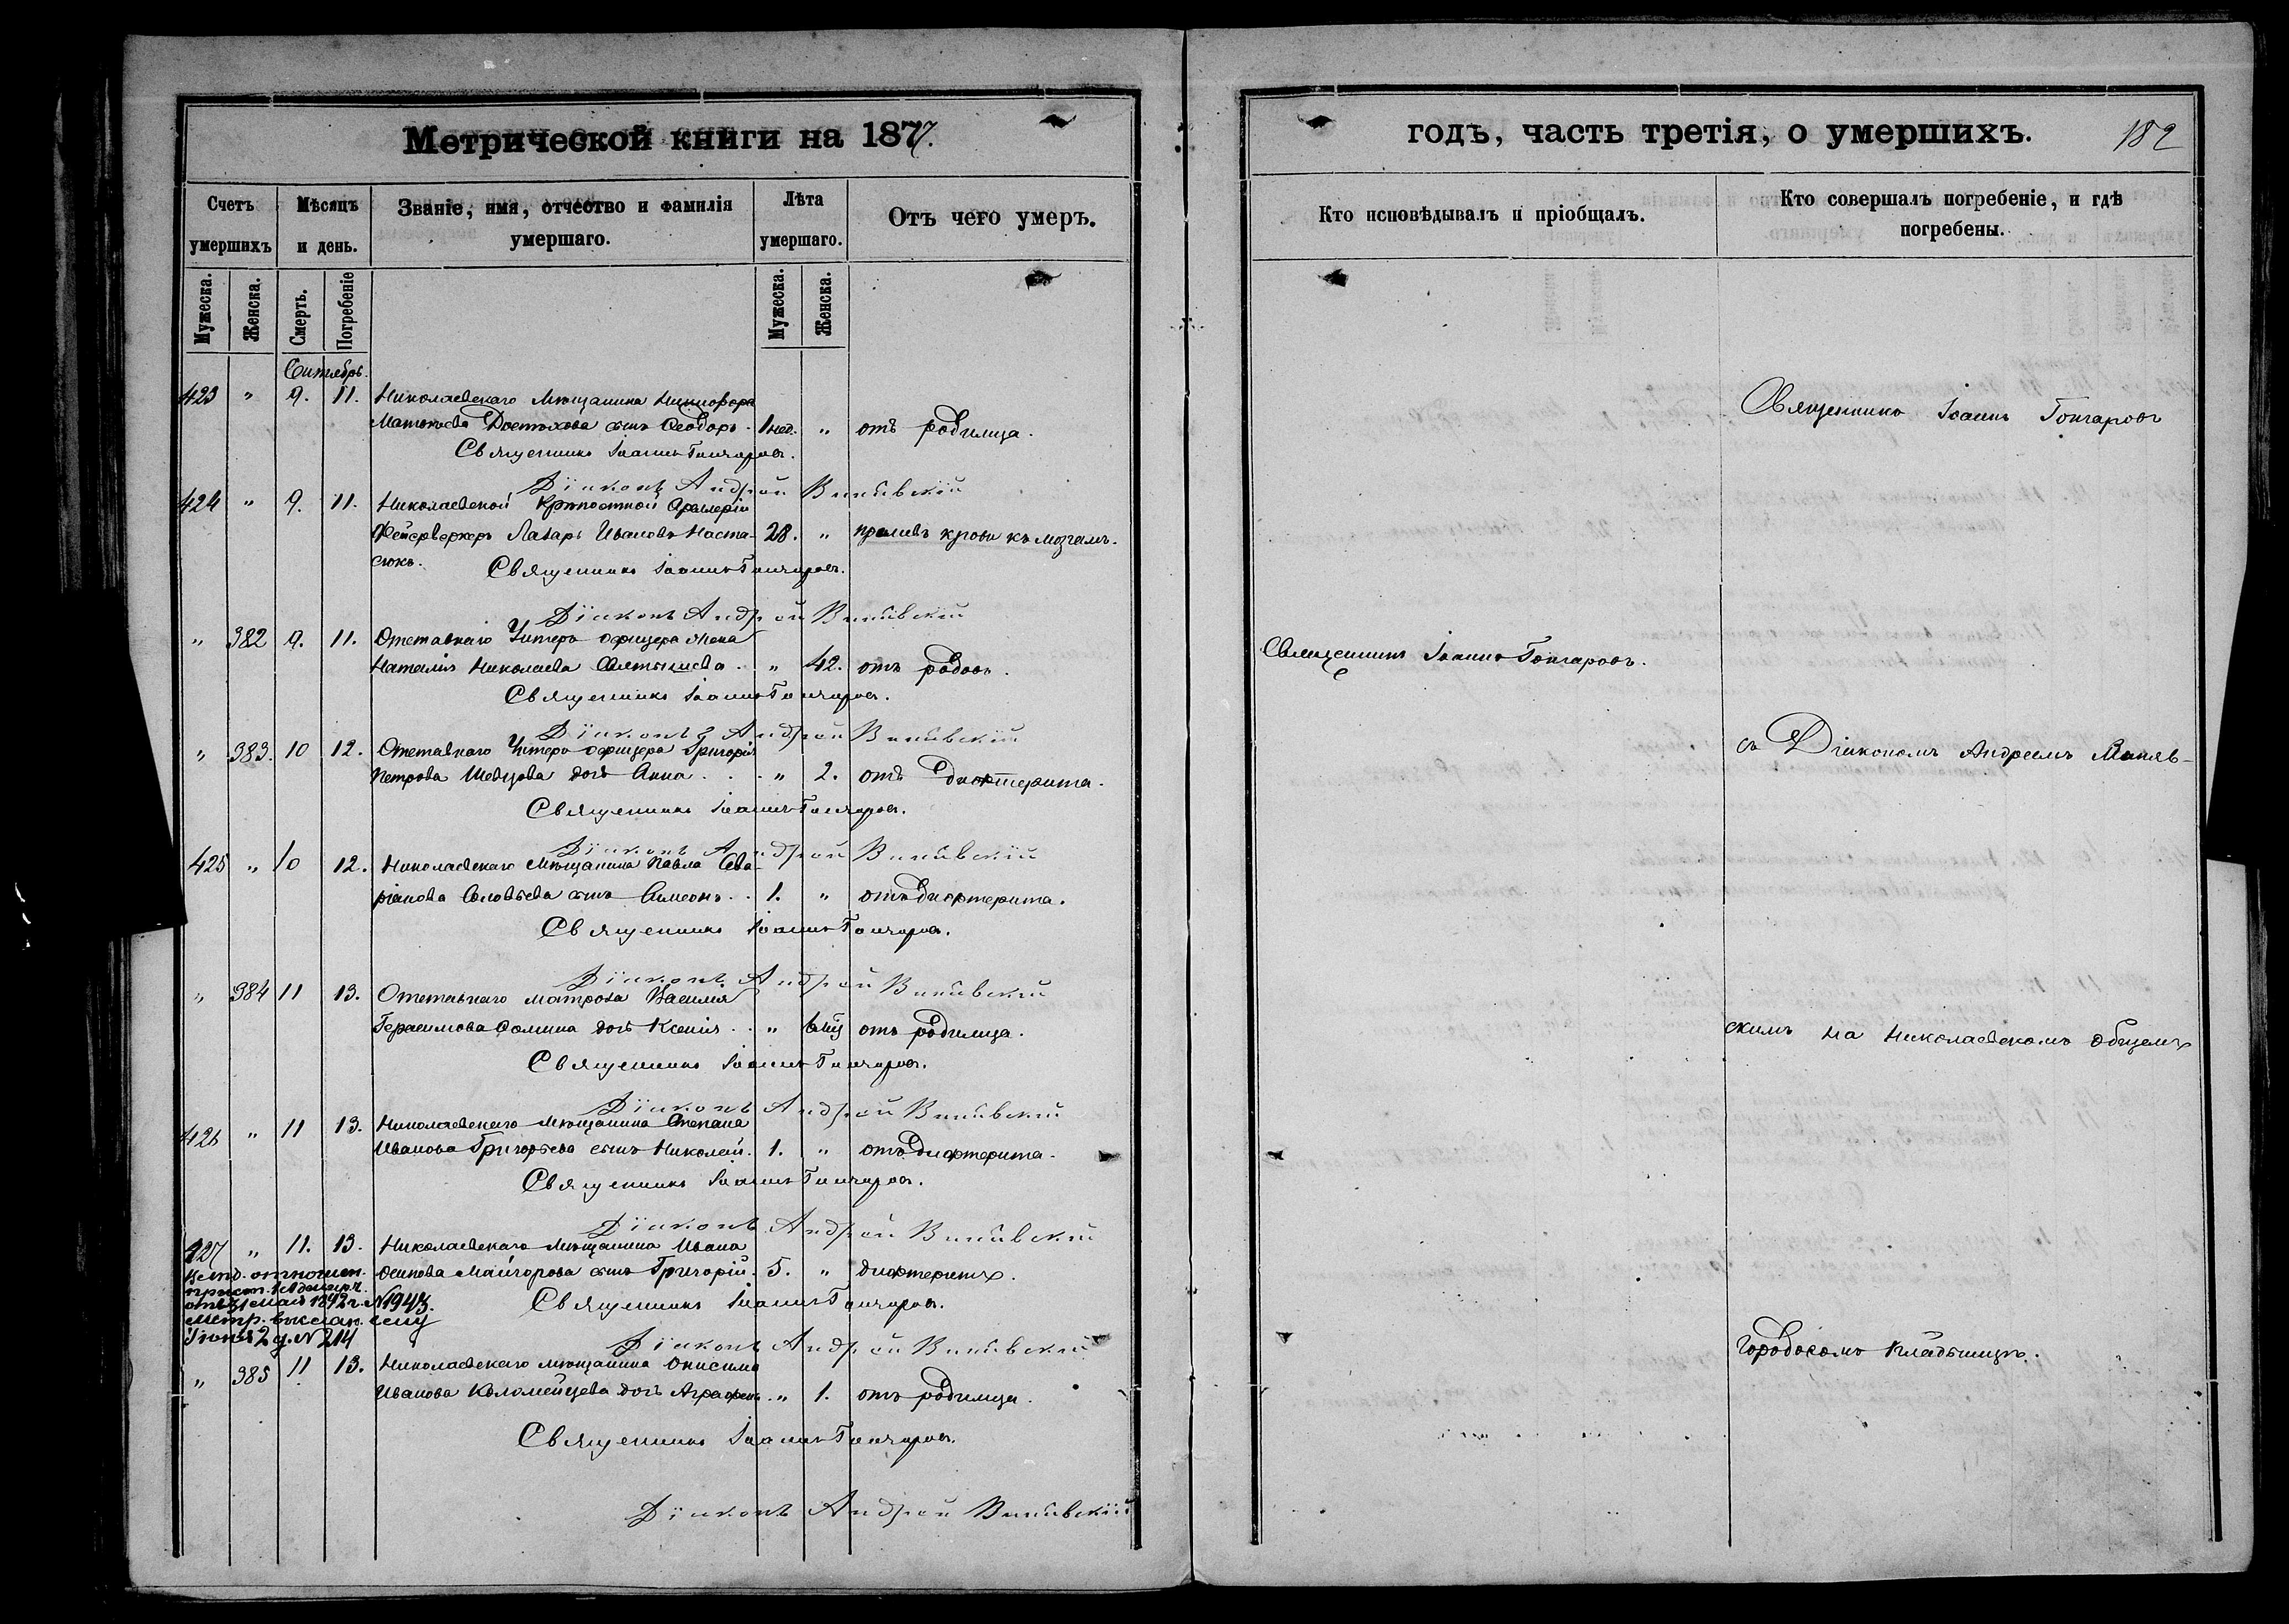 Метрической книги на 1877.
Счетъ умершихъ
Мѣсяцъ и день.
Званіе, имя, отчество и фамилія умершаго.
Лѣта умершаго.
Отъ чего умеръ.
Мужеска.
Женска.
Смерть.
Погребеніе
Мужеска.
Женска.
Сентябрь.
423 " 9. 11. Николаевскаго Мѣщанина Никифора
Матвѣева сынъ Ѳеодоръ. 1 нед. " отъ родимца.
Священникъ Іоаннъ Гончаровъ.
Діаконъ Андрей
424 " 9. 11. Николаевской Крѣпостной Артилеріи
Фейерверкеръ Лазарь Ивановъ Наста- 28. " приливъ крови къ мозгамъ.
сюкъ.
Священникъ Іоаннъ Гончаровъ.
Діаконъ Андрей
" 382 9. 11. Отставнаго Унтеръ офицера жена
Наталія Николаева " 42. отъ родовъ.
Священникъ Іоаннъ Гончаровъ.
Діаконъ Андрей
" 383. 10 12. Отставнаго Унтеръ офицера Григорія
Петрова Шевцова дочь Анна . . . " 2. отъ дифтерита.
Священникъ Іоаннъ Гончаровъ.
Діаконъ Андрей
425 " 10 12. Николаевскаго Мѣщанина Павла Сева-
ріанова Соловьева сынъ Симеонъ . . 1. " отъ дифтерита.
Священникъ Іоаннъ Гончаровъ.
Діаконъ Андрей
" 384 11 13. Отставнаго матроза Василія
Герасимова Ѳомина дочь Ксенія . . " отъ родимца.
Священникъ Іоаннъ Гончаровъ.
Діаконъ Андрей
426 " 11 13. Николаевскаго Мѣщанина Степана
Иванова Григорьева сынъ Николай. 1. " отъ дифтерита.
Священникъ Іоаннъ Гончаровъ.
Діаконъ Андрей
427 " 11. 13. Николаевскаго Мѣщанина Ивана
Осипова Майгорова сынъ Григорій. 5. " дифтеритъ.
Священникъ Іоаннъ Гончаровъ.
отношен.
1892 г. №1943.
Метр. выслан. ему
Іюня 2 д. №214
Діаконъ Андрей
" 385 11 13. Николаевскаго мѣщанина Онисима
Иванова Коломейцева дочь . " 1. отъ родимца.
Священникъ Іоаннъ Гончаровъ.
Діаконъ Андрей
годъ, часть третія, о умершихъ.
182
Кто исповѣдывалъ и пріобщалъ.
Кто совершалъ погребеніе, и гдѣ погребены.
Священникъ Іоаннъ Гончаровъ
Священникъ Іоаннъ Гончаровъ.
съ Діакономъ Андреемъ
скимъ на Николаевскомъ общемъ
городскомъ кладбищѣ.